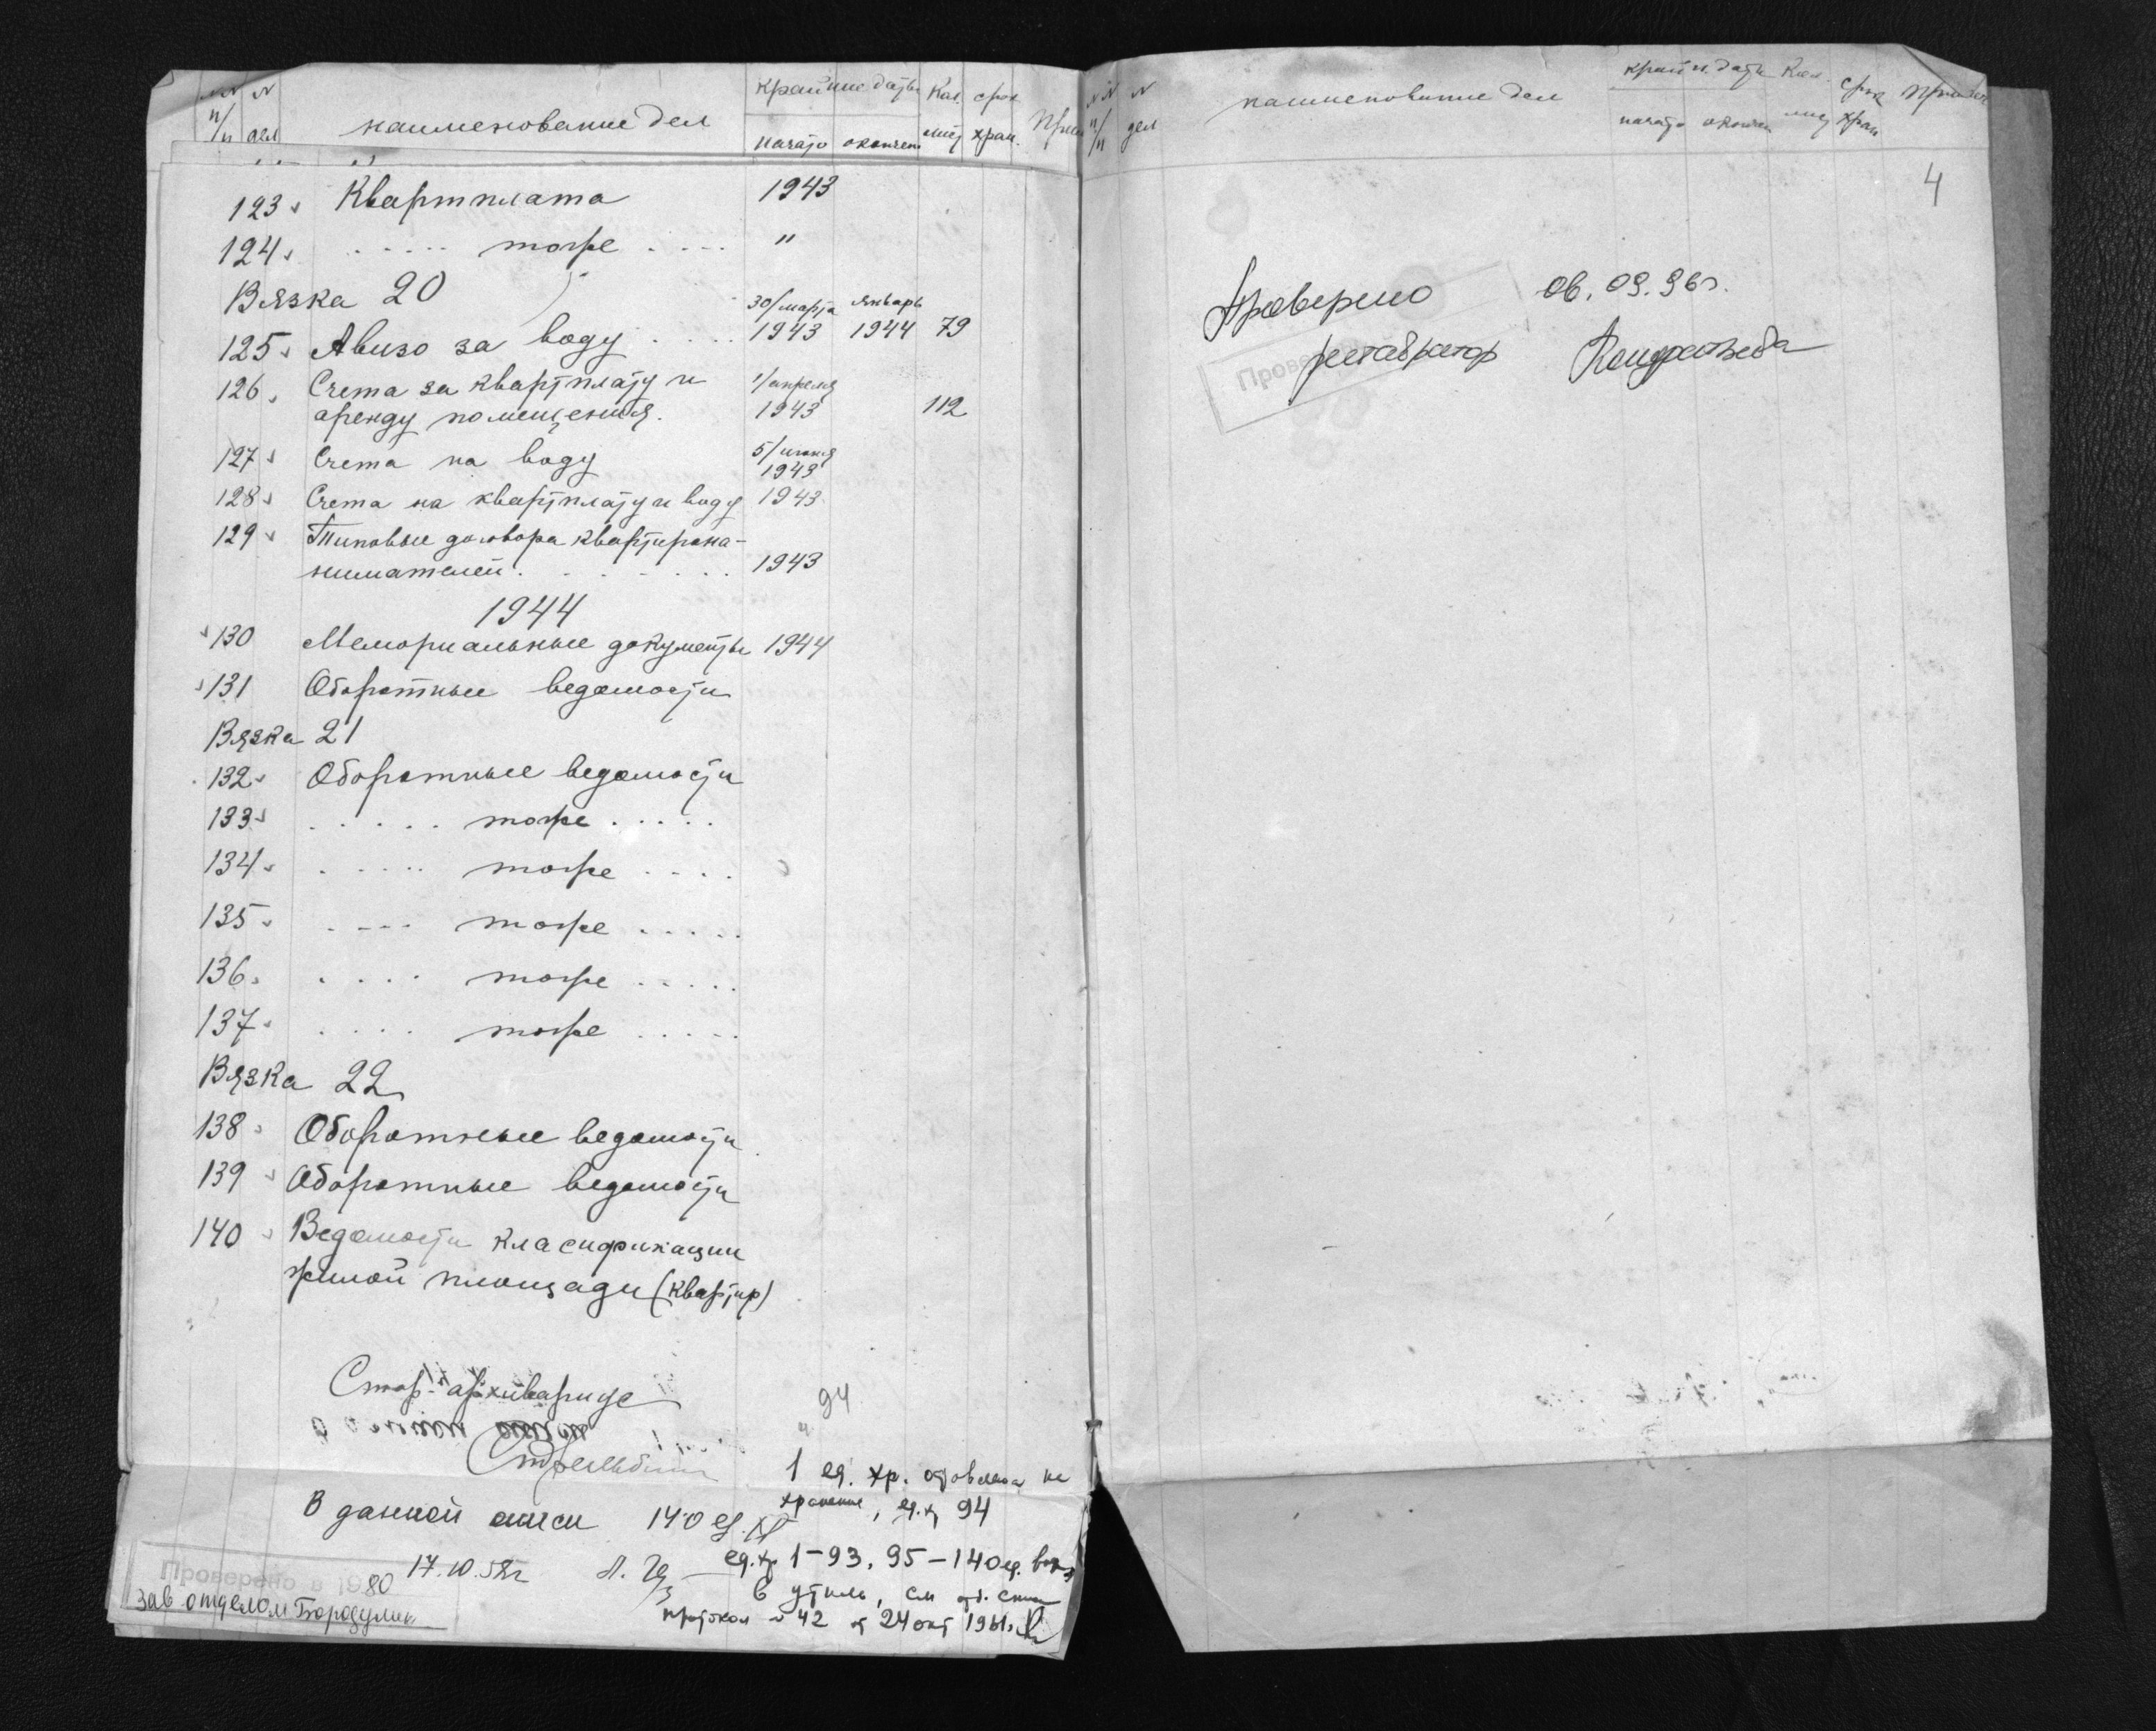 №№ п/п № дел наименование дел крайние даты начато окончен Кол. лист срок хран. Прим
123 Квартплата 1943
124 ..... тоже .... "
Вязка 20
125 Авизо за воду .... 30/марта 1943 январь 1944 79
126 Счета за квартплату и 1/апреля
аренду помещения. 1943 112
127 Счета на воду 5/июня 1943
128 Счета на квартплату и воду 1943
129 Типовые договора квартирона-
нимателей. ....... 1943
1944
130 Мемориальные документы 1944
131 Оборотные ведомости
Вязка 21
132 Оборотные ведомости
133 ..... тоже .....
134 ..... тоже ....
135 .... тоже .....
136 .... тоже .....
137 .... тоже .....
Вязка 22
138 Оборотные ведомости
139 Оборотные ведомости
140 Ведомости класификации
жилой площади (квартир)
Стар. архивариус
94
1 ед. хр. оставлена на
хранение, ед.х. 94
В данной описи 140 ед.
17.10.58г
ед.хр. 1-93, 95-140
в утиль, см
протокол № 42 от 24 окт 1961г.
Проверено в 1980
Зав отделом Бородулин
№№ п/п № дел наименование дел крайн. даты начато окончен Кол. лист срок хран Примеч
4
Проверено 06.09.96г.
реставратор Кондратьева